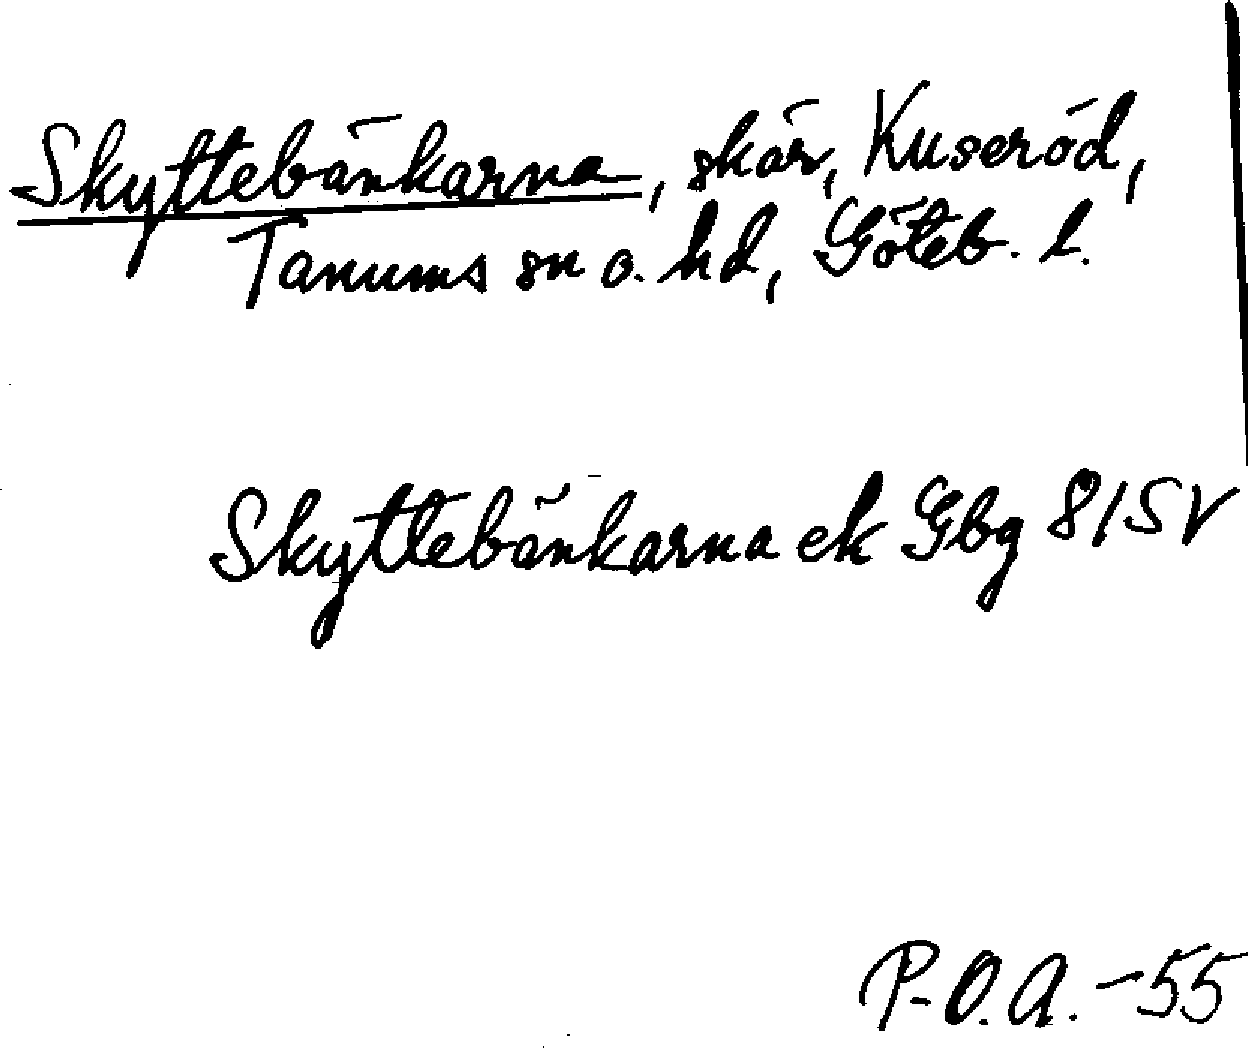 Skyttebänkarna, skär, Kuseröd,
Tanums sn o. hd, Göteb. l.
Skyttebänkarna ek Gbg 8/SV
P-O.A. -55